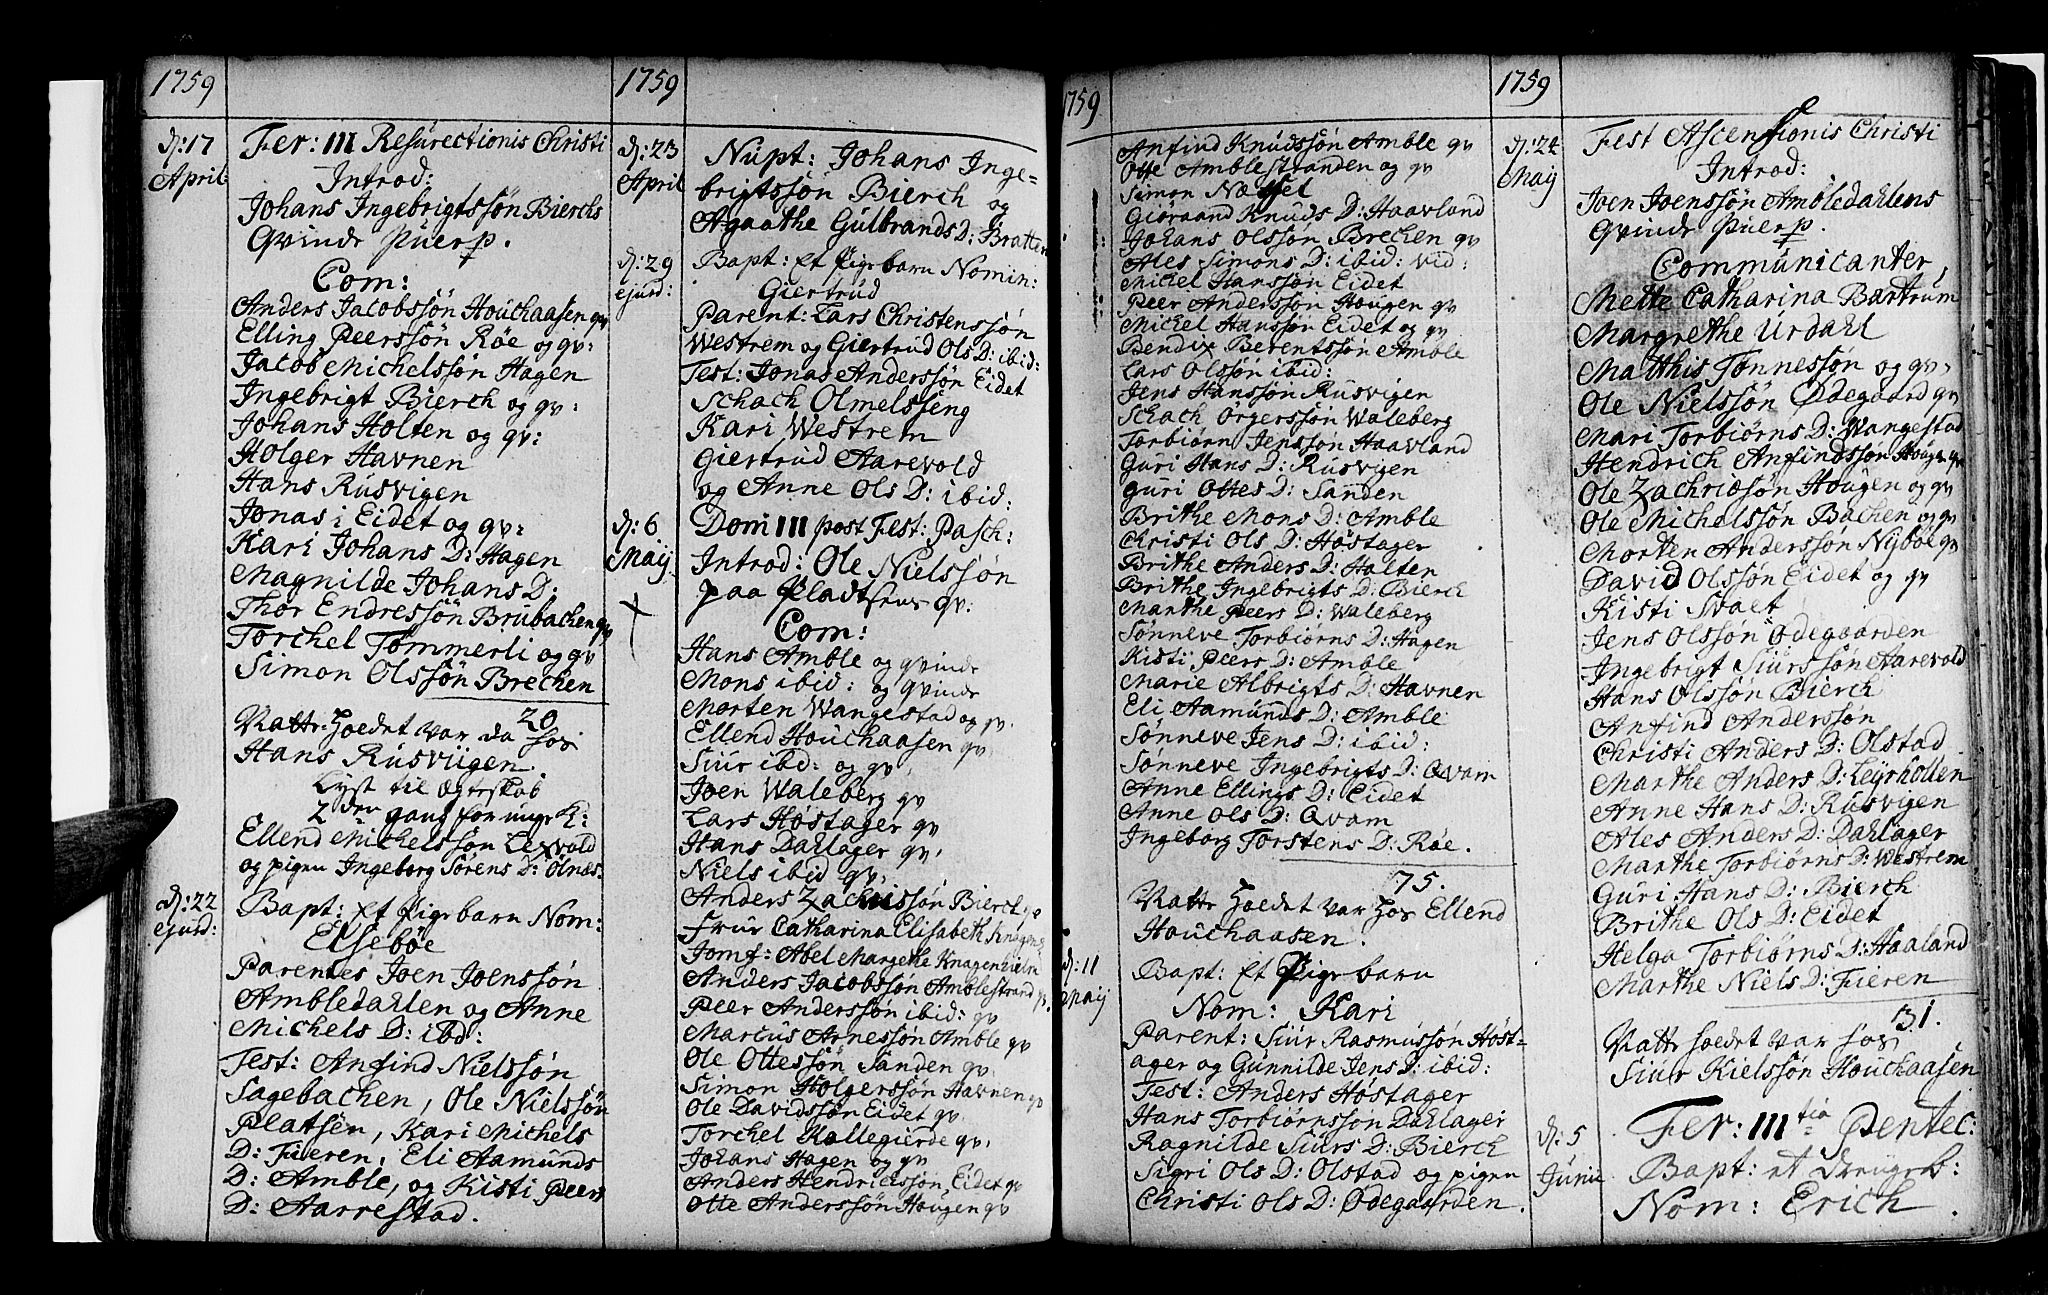 1759
d: 17
April:
Fer: III Resurectionis Christi
Introd:
Johans Ingebrigtssön Bierchs
Qvinde Puerp.
Com:
Anders Jacobssön Houchaasen qv
Elling Peerssön Röe og qv:
Jacob Michelssön Hagen
Ingebrigt Bierch og qv:
Johans Holten og qv:
Holger Havnen
Hans Rusvigen
Jonas i Eidet og qv:
Kari Johans D: Hagen
Magnilde Johans D:
Thor Endressön Brubachen qv
Torchel Tömmerli og qv
Simon Olssön Brechen
20
Natte hoedet var da hos
Hans Rusviigen.
Lyst til Egteskab
2den gang for unge K:
Ellend Michelssön Lexvold
og pigen Ingeborg Sörens D: Olnæs.
d: 22
ejusd:
Bapt: Et Pigebarn Nom:
Elseböe
Parentes Joen Joenssön
Ambledahlen og Anne
Michels D: ibd:
Test: Anfind Nielssön
Sagebachen, Ole Nielssön
Platsen, Kari Michels
D: Fieren, Eli Aamunds
D: Amble, og Kisti Peers
D: Aarrestad.
1759
d: 23
April
Nupt: Johans Inge=
brigtssön Bierch og
Agaathe Gulbrands D: Bratten
d: 29
ejusd:
Bapt: Et Pigebarn Nomin:
Giertrud
Parent: Lars Christenssön
Westrem og Giertrud Ols D: ibid:
Test: Jonas Anderssön Eidet
Schach Olmelsseng
Kari Westrem
Giertrud Aarevold
og Anne Ols D: ibid:
d: 6
Maij
Dom III post Fest: Pasch:
Introd: Ole Nielssön
paa Pladtsens qv:
Com:
Hans Amble og qvinde
Mons ibid: og qvinde
Morten Wangestad og qv.
Ellend Houchaasen qv.
Siur ibd: og qv.
Joen Waleberg qv
Lars Höstager qv
Hans Dahlager qv.
Niels ibid qv.
Anders Zachrissön Bierch qv
Frur Catharina Elisabeth
Jomf: Abel Margethe Knagenhielm
Anders Jacobssön Amblestrand qv.
Peer Anderssön ibid: qv
Marcus Arnessön Amble qv
Ole Ottessön Sanden qv.
Simon Holgerssön Havnen qv
Ole Davidssön Eidet qv.
Torchel Kallegierde qv.
Johans Hagen og qv
Anders Hendrichssön Eidet qv
Otte Anderssön Hougen qv
1759
Anfind Knudssön Amble qv
Otte Amblestranden og qv
Simon Næsset
Giöraand Knuds D: Haavland
Johans Olssön Brechen qv
Ales Simons D: ibid: vid:
Michel Hanssön Eidet
Peer Anderssön Hougen qv
Michel Hanssön Eidet og qv
Bendix Berentssön Amble
Lars Olssön ibid:
Jens Hanssön Rusvigen
Schach Orgerssön Waleberg
Torbiörn Jenssön Haavland
Guri Hans D: Rusvigen
Guri Ottes D: Sanden
Brithe Mons D: Amble
Christi Ols D: Höstager
Brithe Anders D: Holten
Brithe Ingebrigts D: Bierch
Marthe Peers D: Waleberg
Sönneve Torbiörns D: Hagen
Kisti Peers D: Amble
Marie Albrigts D: Havnen
Eli Aamunds D: Amble
Sönneve Jens D: ibid:
Sönneve Ingebrigts D: Qvam
Anne Ellings D: Eidet
Anne Ols D: Qvam
Ingeborg Torstens D: Röe.
75.
Natte hoedet var hos Ellend
Houchaasen.
d: 11
Maij
Bapt: Et Pigebarn
Nom: Kari
Parent: Siur Rasmussön Höst-
ager og Gunnilde Jens D: ibid:
Test: Anders Höstager
Hans Torbiörnssön Dahlager
Ragnilde Siurs D: Bierch
Sigri Ols D: Olstad og pigen
Christi Ols D: Ödegaarden.
1759
d: 24
Maij
Fest Ascensionis Christi
Introd:
Joen Joenssön Ambledahlens
Qvinde Puerp.
Communicanter,
Mette Catharina Bartrum
Margrethe Urdahl
Matthis Tönnessön og qv.
Ole Nielssön Ödegaard qv
Mari Torbiörns D: Wangestad
Hendrich Anfindssön Hougen qv
Ole Zachrissön Hougen og qv
Ole Michelssön Bachen og qv
Morten Anderssön Nyböe qv
David Olssön Eidet og qv
Kisti Svaet
Jens Olssön Ödegaarden
Ingebrigt Siurssön Aarevold
Hans Olssön Bierch
Anfind Anderssön
Christi Anders D: Olstad
Marthe Anders D: Leyrhollen
Anne Hans D: Rusvigen
Ales Anders D: Dahlager
Marthe Torbiörns D: Westrem
Guri Hans D: Bierch
Brithe Ols D: Eidet
Helga Torbiörns D: Haaland
Marthe Niels D: Fieren
31.
Natte hoedet var hos
Siur Kielssön Houchaasen
d: 5
Junii
Fer: III tia Pentec:
Bapt: et Drengeb:
Nom: Erich.